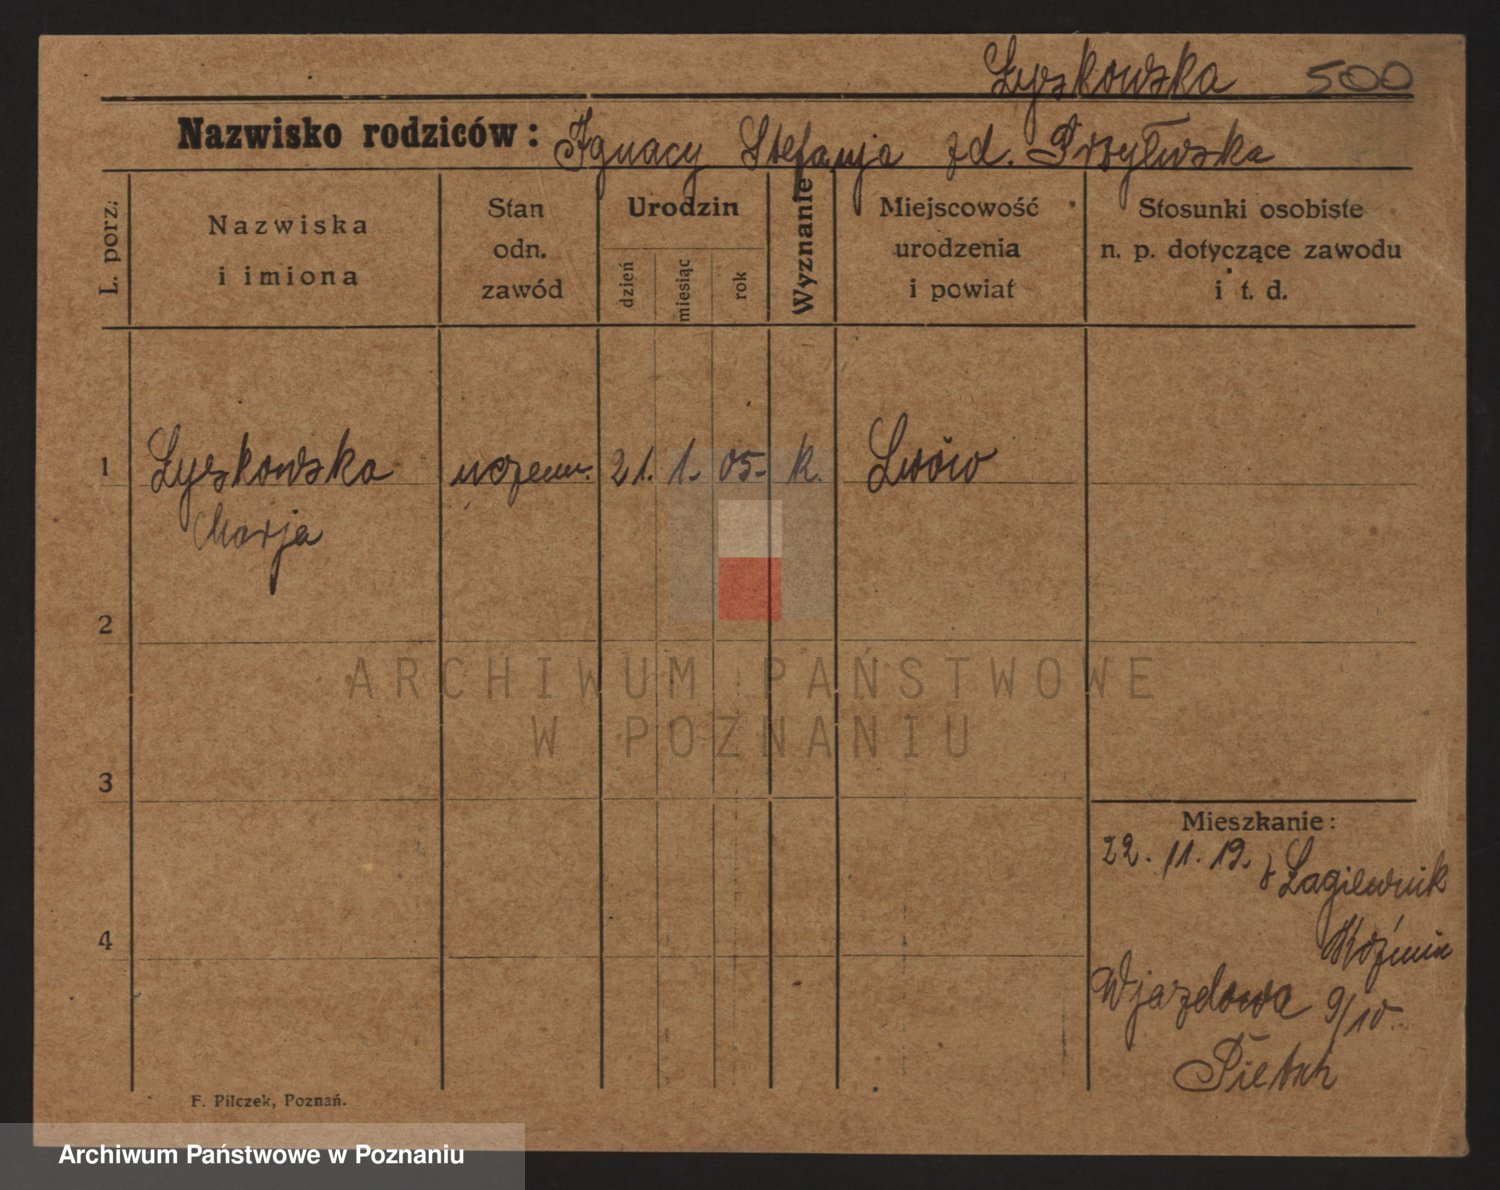 Łyskowska 500
Nazwisko rodziców: Ignacy Stefanja zd.
L. porz.
Nazwiska
i imiona
Stan
odn.
zawód
Urodzin
dzień
miesiąc
rok
Wyznanie
Miejscowość
urodzenia
i powiat
Stosunki osobiste
n. p. dotyczące zawodu
i t. d.
1 Łyskowska uczenn. 21. 1. 05. k. Lwów
Marja
2
3
4
Mieszkanie:
22. 11. 19. z Łagiewnik
Koźmin
Wjazdowa 9/10.
F. Pilczek, Poznań.
ARCHIWUM PAŃSTWOWE
W POZNANIU
Archiwum Państwowe w Poznaniu